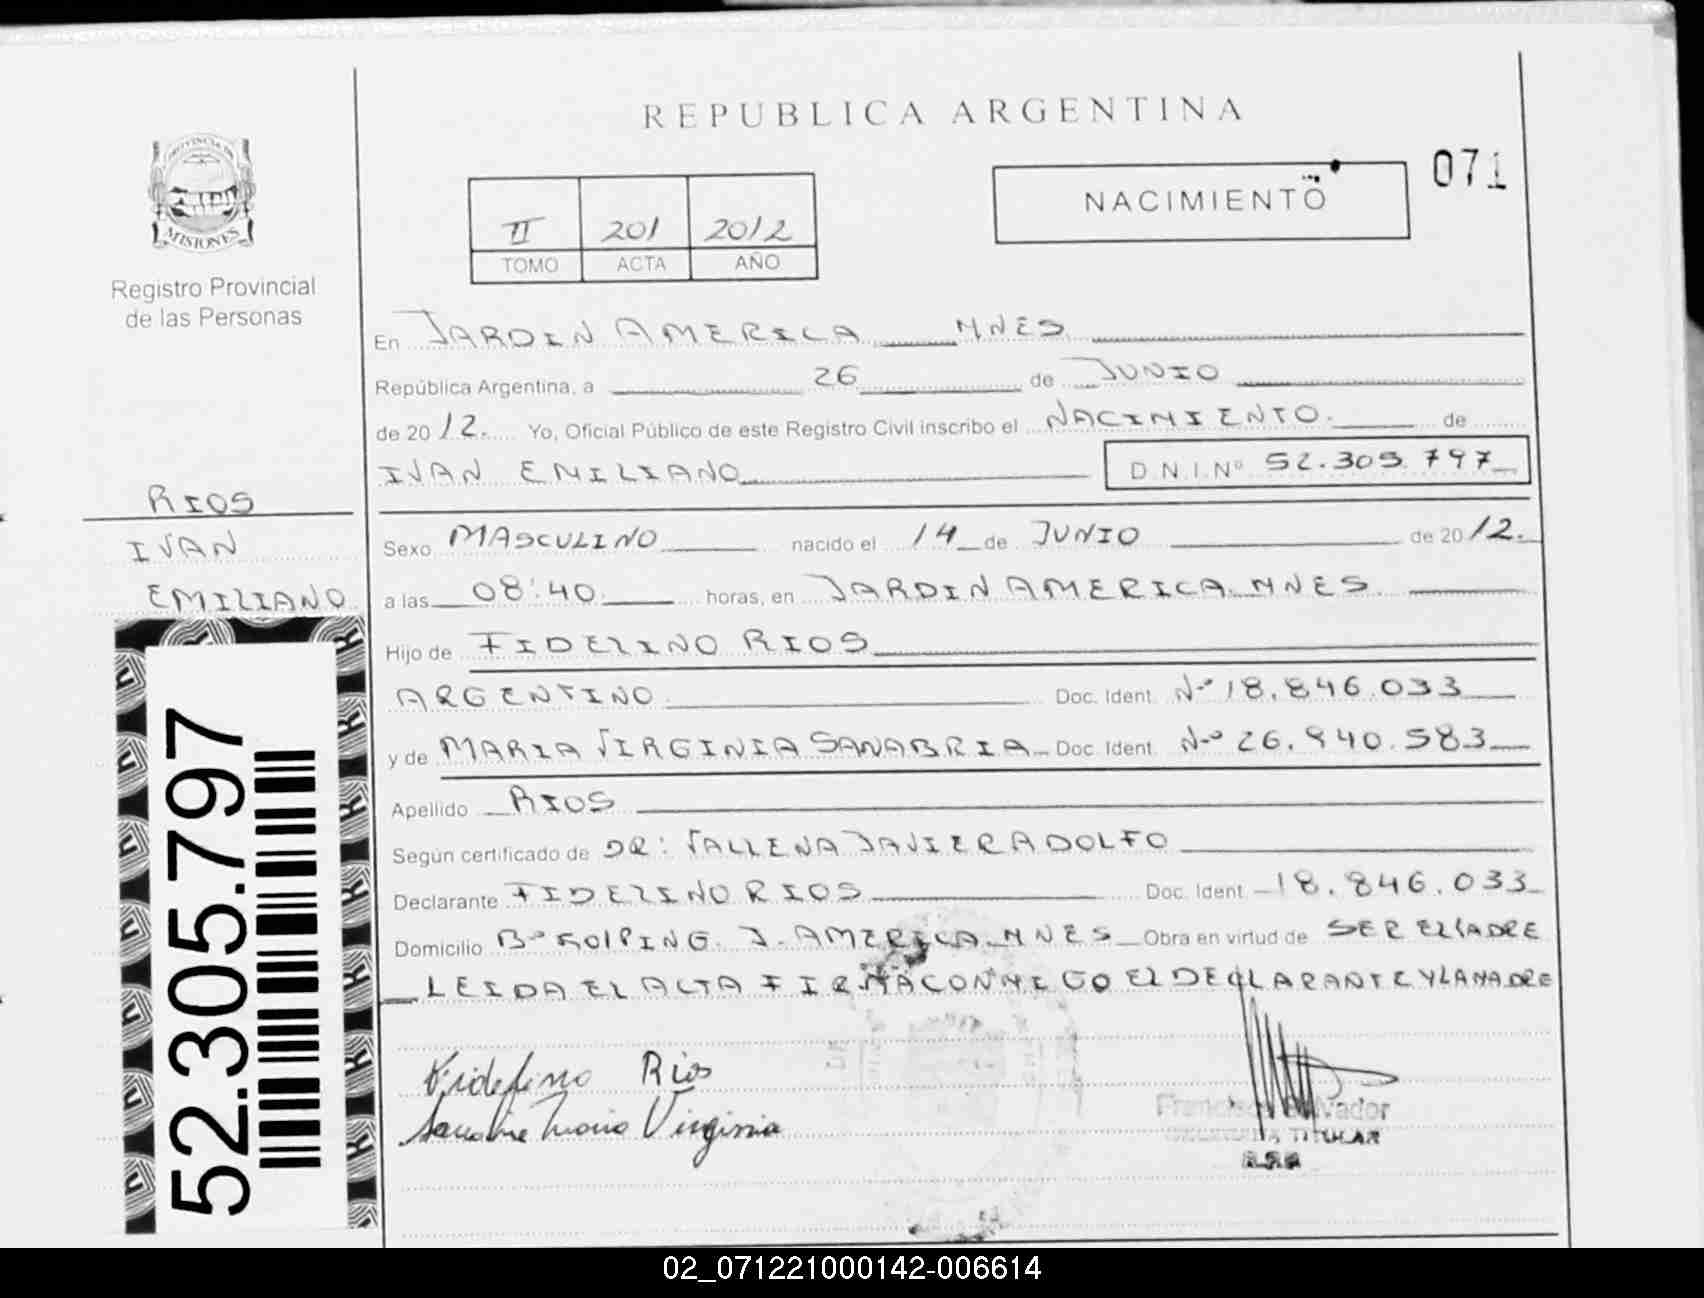 REPUBLICA ARGENTINA
PROVINCIA DE
MISIONES
Registro Provincial
de las Personas
NACIMIENTO
071
II 201 2012
TOMO ACTA AÑO
En JARDIN AMERICA MNES
República Argentina, a 26 de JUNIO
de 2012. Yo, Oficial Público de este Registro Civil inscribo el NACIMIENTO. de
IVAN EMILIANO D.N.I. Nº 52.305.797
RIOS
IVAN
EMILIANO
Sexo MASCULINO nacido el 14 de JUNIO de 2012.
a las 08:40 horas, en JARDIN AMERICA MNES
Hijo de FIDELINO RIOS
ARGENTINO Doc. Ident. Nº 18.846.033
y de MARIA VIRGINIA SANABRIA Doc. Ident. Nº 26.940.583
Apellido RIOS
Según certificado de DR: VALLENA JAVIER ADOLFO
Declarante FIDELINO RIOS Doc. Ident. 18.846.033
Domicilio Bº KOLPING. J. AMERICA MNES Obra en virtud de SER EL PADRE
LEIDA EL ACTA FIRMA CONMIGO EL DECLARANTE Y LA MADRE
Fidelino Rios
Maria Virginia
Francisco Salvador
TITULAR
52.305.797
02_071221000142-006614